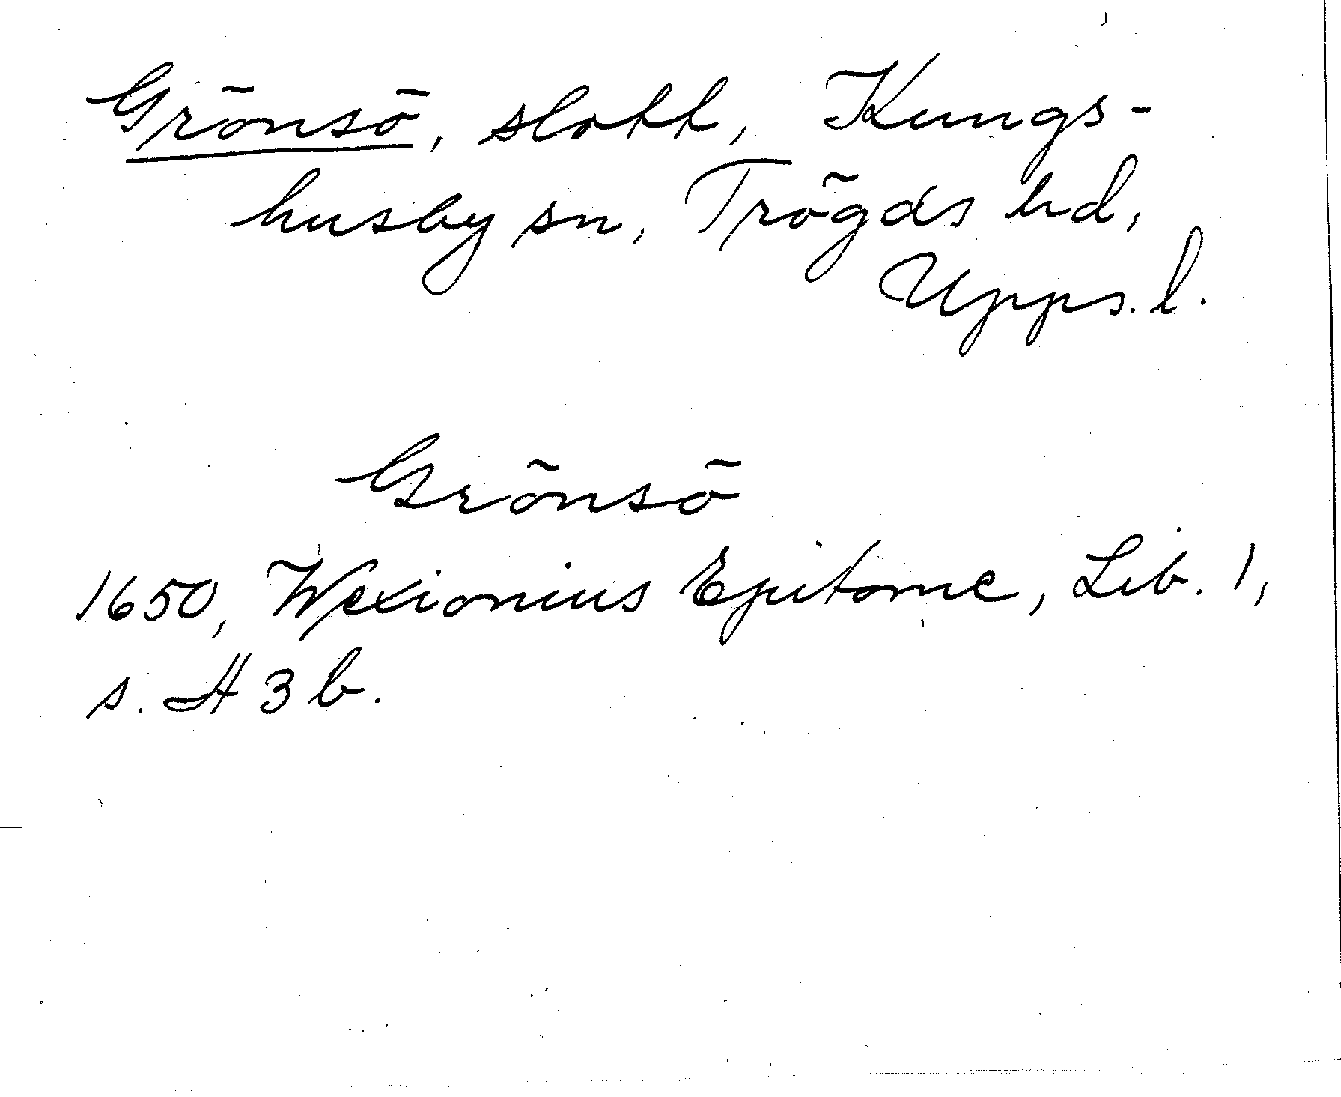 Grönsö, slott, Kungs-
husby sn, Trögds hd,
Upps. l.
Grönsö
1650, Wexionius Epitome, Lib. 1,
s. H 3 b.